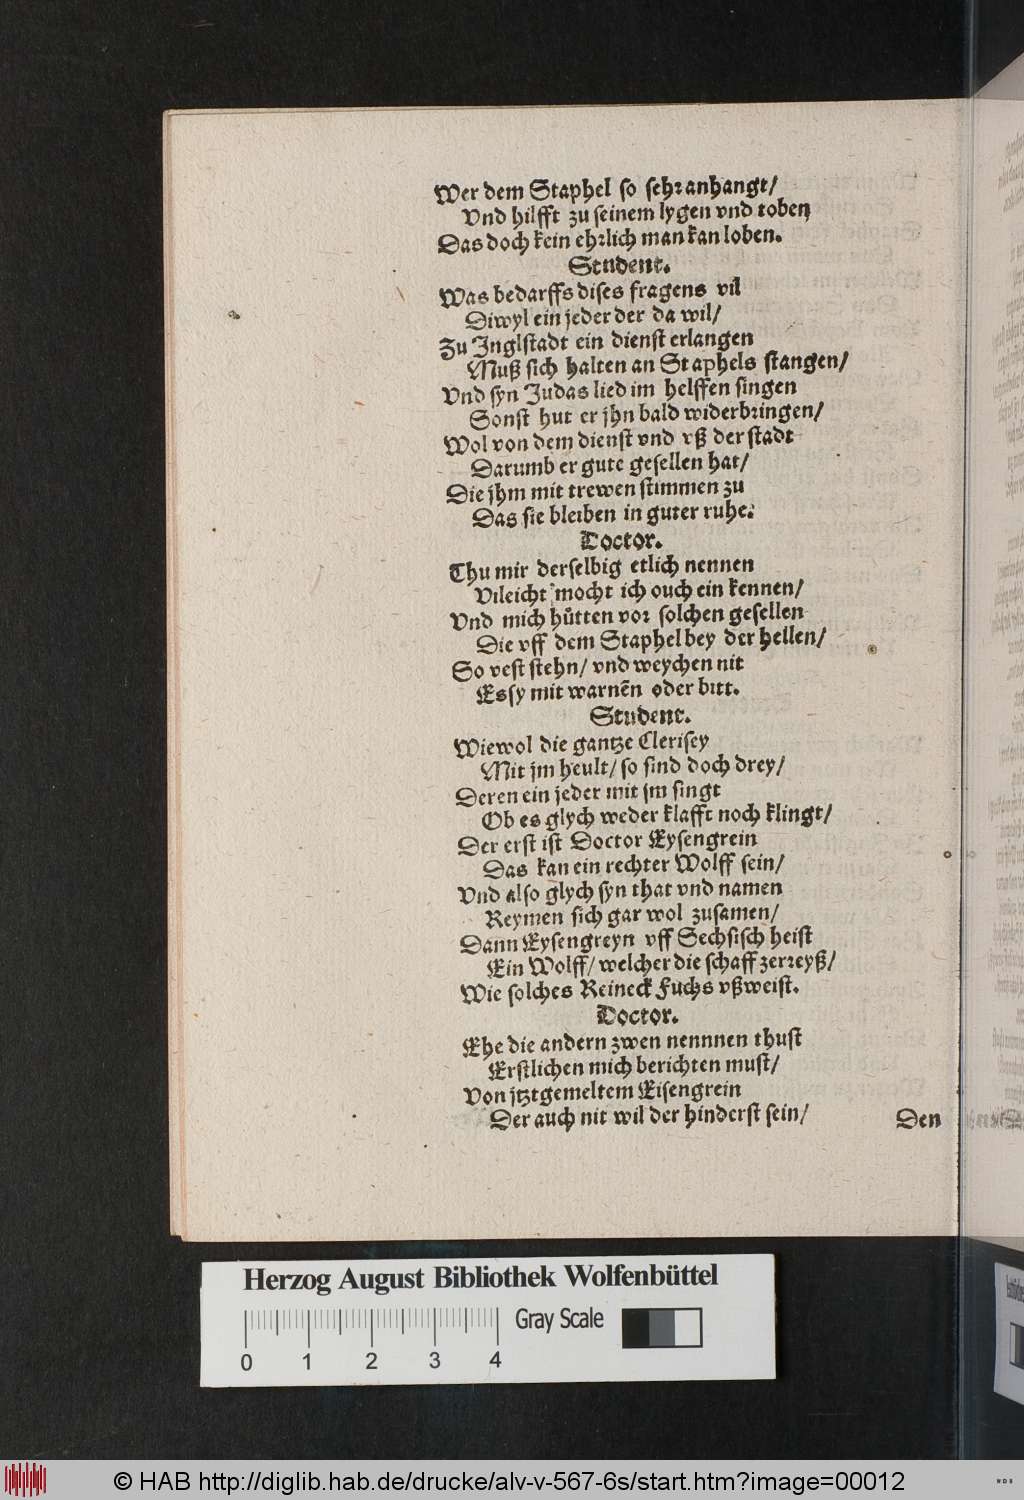 Wer dem Staphel so sehr anhangt/
Vnd hilfft zu seinem lygen vnd toben
Das doch kein ehrlich man kan loben.
Student.
Was bedarffs dises fragens vil
Diwyl ein jeder der da wil/
Zu Inglstadt ein dienst erlangen
Muß sich halten an Staphels stangen/
Vnd syn Judas lied im helffen singen
Sonst hut er jhn bald widerbringen/
Wol von dem dienst vnd vß der stadt
Darumb er gute gesellen hat/
Die jhm mit trewen stimmen zu
Das sie bleiben in guter ruhe.
Doctor.
Thu mir derselbig etlich nennen
Vileicht mocht ich ouch ein kennen/
Vnd mich hůtten vor solchen gesellen
Die vff dem Staphel bey der hellen/
So vest stehn/ vnd weychen nit
Es sy mit warnẽ oder bitt.
Student.
Wiewol die gantze Clerisey
Mit jm heult/ so sind doch drey/
Deren ein jeder mit jm singt
Ob es glych weder klafft noch klingt/
Der erst ist Doctor Eysengrein
Das kan ein rechter Wolff sein/
Vnd also glych syn that vnd namen
Reymen sich gar wol zusamen/
Dann Eysengreyn vff Sechsisch heist
Ein Wolff/ welcher die schaff zerreyß/
Wie solches Reineck Fuchs vßweist.
Doctor.
Ehe die andern zwen nennnen thust
Erstlichen mich berichten must/
Von jtztgemeltem Eisengrein
Der auch nit wil der hinderst sein/
Den
Herzog August Bibliothek Wolfenbüttel
Gray Scale
0 1 2 3 4
© HAB http://diglib.hab.de/drucke/alv-v-567-6s/start.htm?image=00012